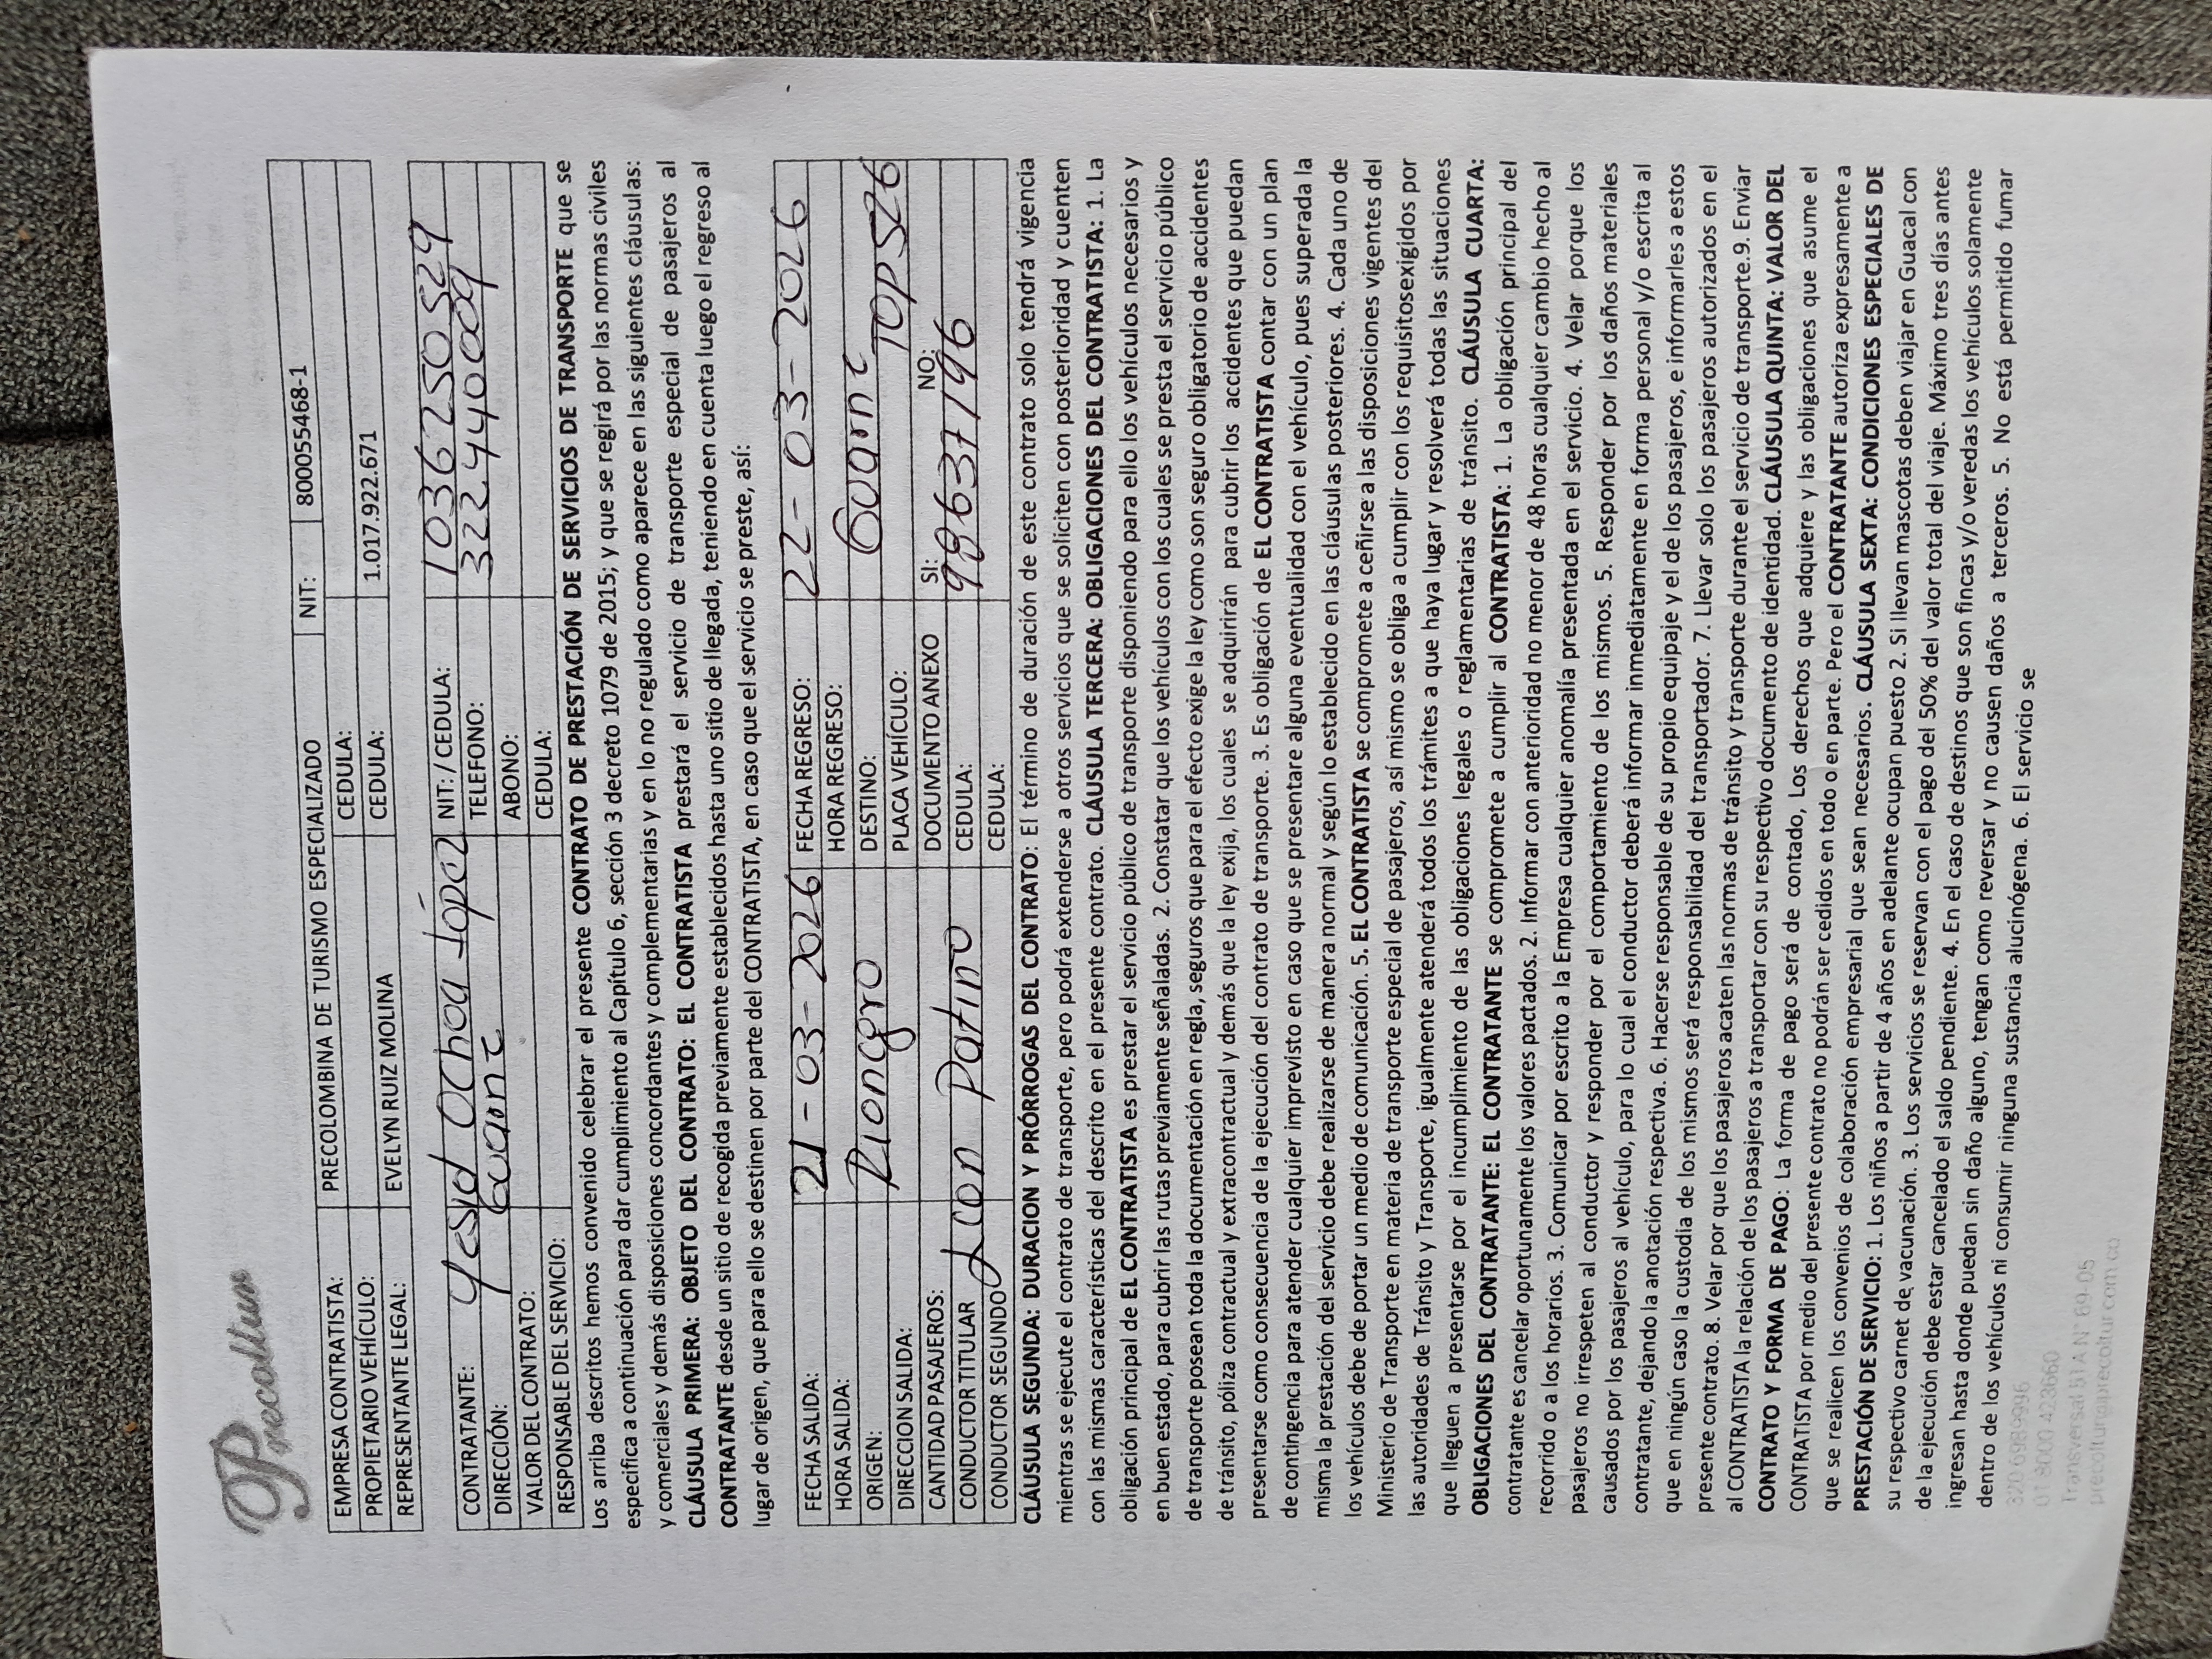 Precoltur
EMPRESA CONTRATISTA: PRECOLOMBINA DE TURISMO ESPECIALIZADO NIT: 800055468-1
PROPIETARIO VEHÍCULO: CEDULA:
REPRESENTANTE LEGAL: EVELYN RUIZ MOLINA CEDULA: 1.017.922.671
CONTRATANTE: Yesid Ochoa López NIT:/CEDULA: 1036250529
DIRECCIÓN: TELEFONO: 322440009
VALOR DEL CONTRATO: ABONO:
RESPONSABLE DEL SERVICIO: CEDULA:
Los arriba descritos hemos convenido celebrar el presente CONTRATO DE PRESTACIÓN DE SERVICIOS DE TRANSPORTE que se
especifica a continuación para dar cumplimiento al Capítulo 6, sección 3 decreto 1079 de 2015; y que se regirá por las normas civiles
y comerciales y demás disposiciones concordantes y complementarias y en lo no regulado como aparece en las siguientes cláusulas:
CLÁUSULA PRIMERA: OBJETO DEL CONTRATO: EL CONTRATISTA prestará el servicio de transporte especial de pasajeros al
CONTRATANTE desde un sitio de recogida previamente establecidos hasta uno sitio de llegada, teniendo en cuenta luego el regreso al
lugar de origen, que para ello se destinen por parte del CONTRATISTA, en caso que el servicio se preste, así:
FECHA SALIDA: 21-03-2026 FECHA REGRESO: 22-03-2026
HORA SALIDA: HORA REGRESO:
ORIGEN: Rionegro DESTINO:
DIRECCION SALIDA: PLACA VEHÍCULO: TOP526
CANTIDAD PASAJEROS: DOCUMENTO ANEXO SI: NO:
CONDUCTOR TITULAR Leon Patino CEDULA: 98637196
CONDUCTOR SEGUNDO CEDULA:
CLÁUSULA SEGUNDA: DURACION Y PRÓRROGAS DEL CONTRATO: El término de duración de este contrato solo tendrá vigencia
mientras se ejecute el contrato de transporte, pero podrá extenderse a otros servicios que se soliciten con posterioridad y cuenten
con las mismas características del descrito en el presente contrato. CLÁUSULA TERCERA: OBLIGACIONES DEL CONTRATISTA: 1. La
obligación principal de EL CONTRATISTA es prestar el servicio público de transporte disponiendo para ello los vehículos necesarios y
en buen estado, para cubrir las rutas previamente señaladas. 2. Constatar que los vehículos con los cuales se presta el servicio público
de transporte posean toda la documentación en regla, seguros que para el efecto exige la ley como son seguro obligatorio de accidentes
de tránsito, póliza contractual y extracontractual y demás que la ley exija, los cuales se adquirirán para cubrir los accidentes que puedan
presentarse como consecuencia de la ejecución del contrato de transporte. 3. Es obligación de EL CONTRATISTA contar con un plan
de contingencia para atender cualquier imprevisto en caso que se presentare alguna eventualidad con el vehículo, pues superada la
misma la prestación del servicio debe realizarse de manera normal y según lo establecido en las cláusulas posteriores. 4. Cada uno de
los vehículos debe de portar un medio de comunicación. 5. EL CONTRATISTA se compromete a ceñirse a las disposiciones vigentes del
Ministerio de Transporte en materia de transporte especial de pasajeros, así mismo se obliga a cumplir con los requisitosexigidos por
las autoridades de Tránsito y Transporte, igualmente atenderá todos los trámites a que haya lugar y resolverá todas las situaciones
que lleguen a presentarse por el incumplimiento de las obligaciones legales o reglamentarias de tránsito. CLÁUSULA CUARTA:
OBLIGACIONES DEL CONTRATANTE: EL CONTRATANTE se compromete a cumplir al CONTRATISTA: 1. La obligación principal del
contratante es cancelar oportunamente los valores pactados. 2. Informar con anterioridad no menor de 48 horas cualquier cambio hecho al
recorrido o a los horarios. 3. Comunicar por escrito a la Empresa cualquier anomalía presentada en el servicio. 4. Velar porque los
pasajeros no irrespeten al conductor y responder por el comportamiento de los mismos. 5. Responder por los daños materiales
causados por los pasajeros al vehículo, para lo cual el conductor deberá informar inmediatamente en forma personal y/o escrita al
contratante, dejando la anotación respectiva. 6. Hacerse responsable de su propio equipaje y el de los pasajeros, e informarles a estos
que en ningún caso la custodia de los mismos será responsabilidad del transportador. 7. Llevar solo los pasajeros autorizados en el
presente contrato. 8. Velar por que los pasajeros acaten las normas de tránsito y transporte durante el servicio de transporte.9. Enviar
al CONTRATISTA la relación de los pasajeros a transportar con su respectivo documento de identidad. CLÁUSULA QUINTA: VALOR DEL
CONTRATO Y FORMA DE PAGO: La forma de pago será de contado, Los derechos que adquiere y las obligaciones que asume el
CONTRATISTA por medio del presente contrato no podrán ser cedidos en todo o en parte. Pero el CONTRATANTE autoriza expresamente a
que se realicen los convenios de colaboración empresarial que sean necesarios. CLÁUSULA SEXTA: CONDICIONES ESPECIALES DE
PRESTACIÓN DE SERVICIO: 1. Los niños a partir de 4 años en adelante ocupan puesto 2. Si llevan mascotas deben viajar en Guacal con
su respectivo carnet de vacunación. 3. Los servicios se reservan con el pago del 50% del valor total del viaje. Máximo tres días antes
de la ejecución debe estar cancelado el saldo pendiente. 4. En el caso de destinos que son fincas y/o veredas los vehículos solamente
ingresan hasta donde puedan sin daño alguno, tengan como reversar y no causen daños a terceros. 5. No está permitido fumar
dentro de los vehículos ni consumir ninguna sustancia alucinógena. 6. El servicio se
320 6989996
01 8000 423660
Transversal 51 A N° 69-05
precoltur@precoltur.com.co